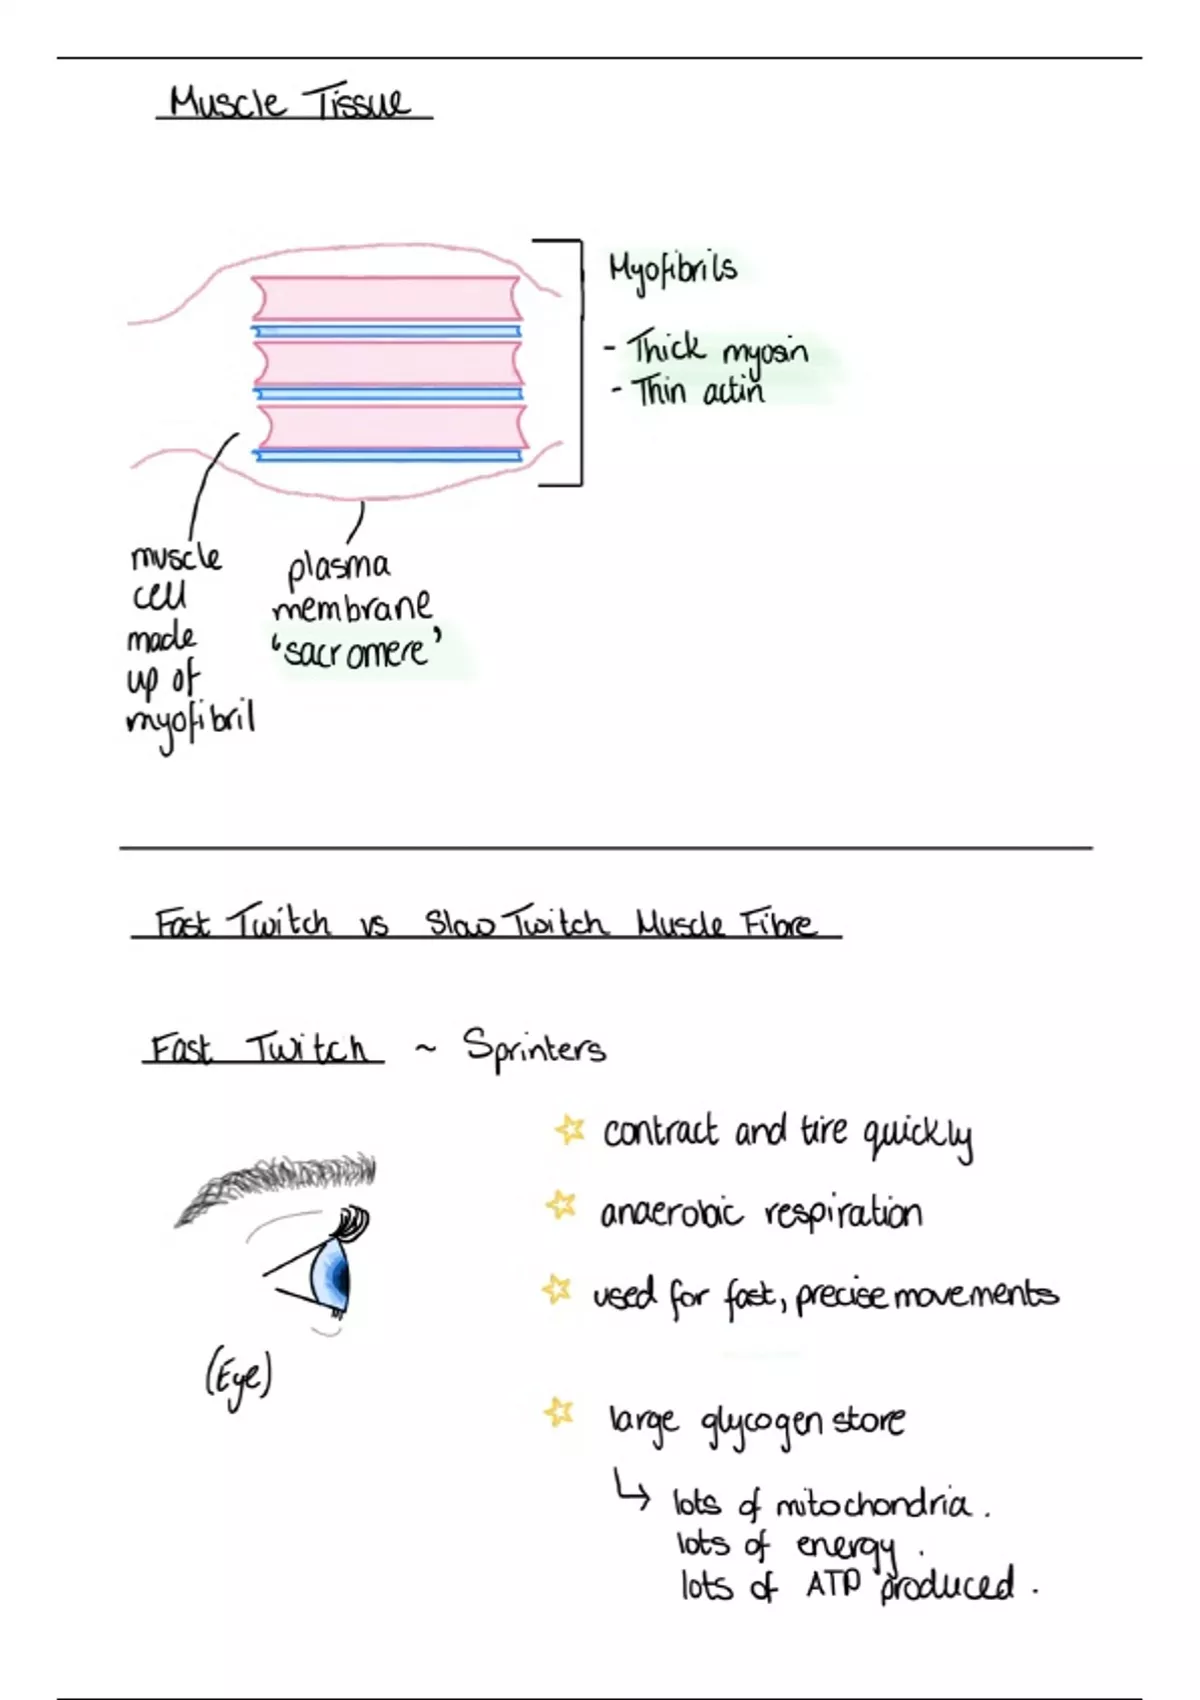 Muscle Tissue
Myofibrils
- Thick myosin
- Thin actin
muscle
cell
made
up of
myofibril
plasma
membrane
'sacromere'
Fast Twitch vs Slow Twitch Muscle Fibre
Fast Twitch ~ Sprinters
☆ contract and tire quickly
☆ anaerobic respiration
☆ used for fast, precise movements
(Eye)
☆ large glycogen store
↳ lots of mitochondria.
lots of energy.
lots of ATP produced.